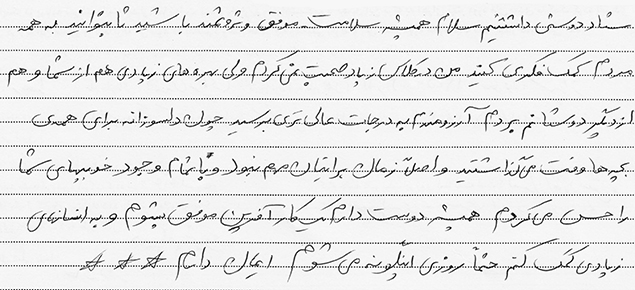 ستاد دوستی داشتنیم سلام همیشه سلامت موفق و ثروتمند باشید تا بتوانید به همه
مردم کمک فکری کنید من در کلاس زیاد صحبت نمی‌کردم ولی بهره های زیادی هم از شما و هم
از دیگر دوستانم بردم آرزومندم به درجات عالی تری برسید چون دلسوزانه برای همه‌ی
بچه ها وقت می‌گذاشتید و اصلاً زمان برایتان مهم نبود و با تمام وجود خوبیهای شما
را حس می‌کردم همیشه دوست دارم یک کارآفرین موفق بشوم و به انسانهای
زیادی کمک کنم حتماً روزی اینگونه می شوم ایمان دارم # # #